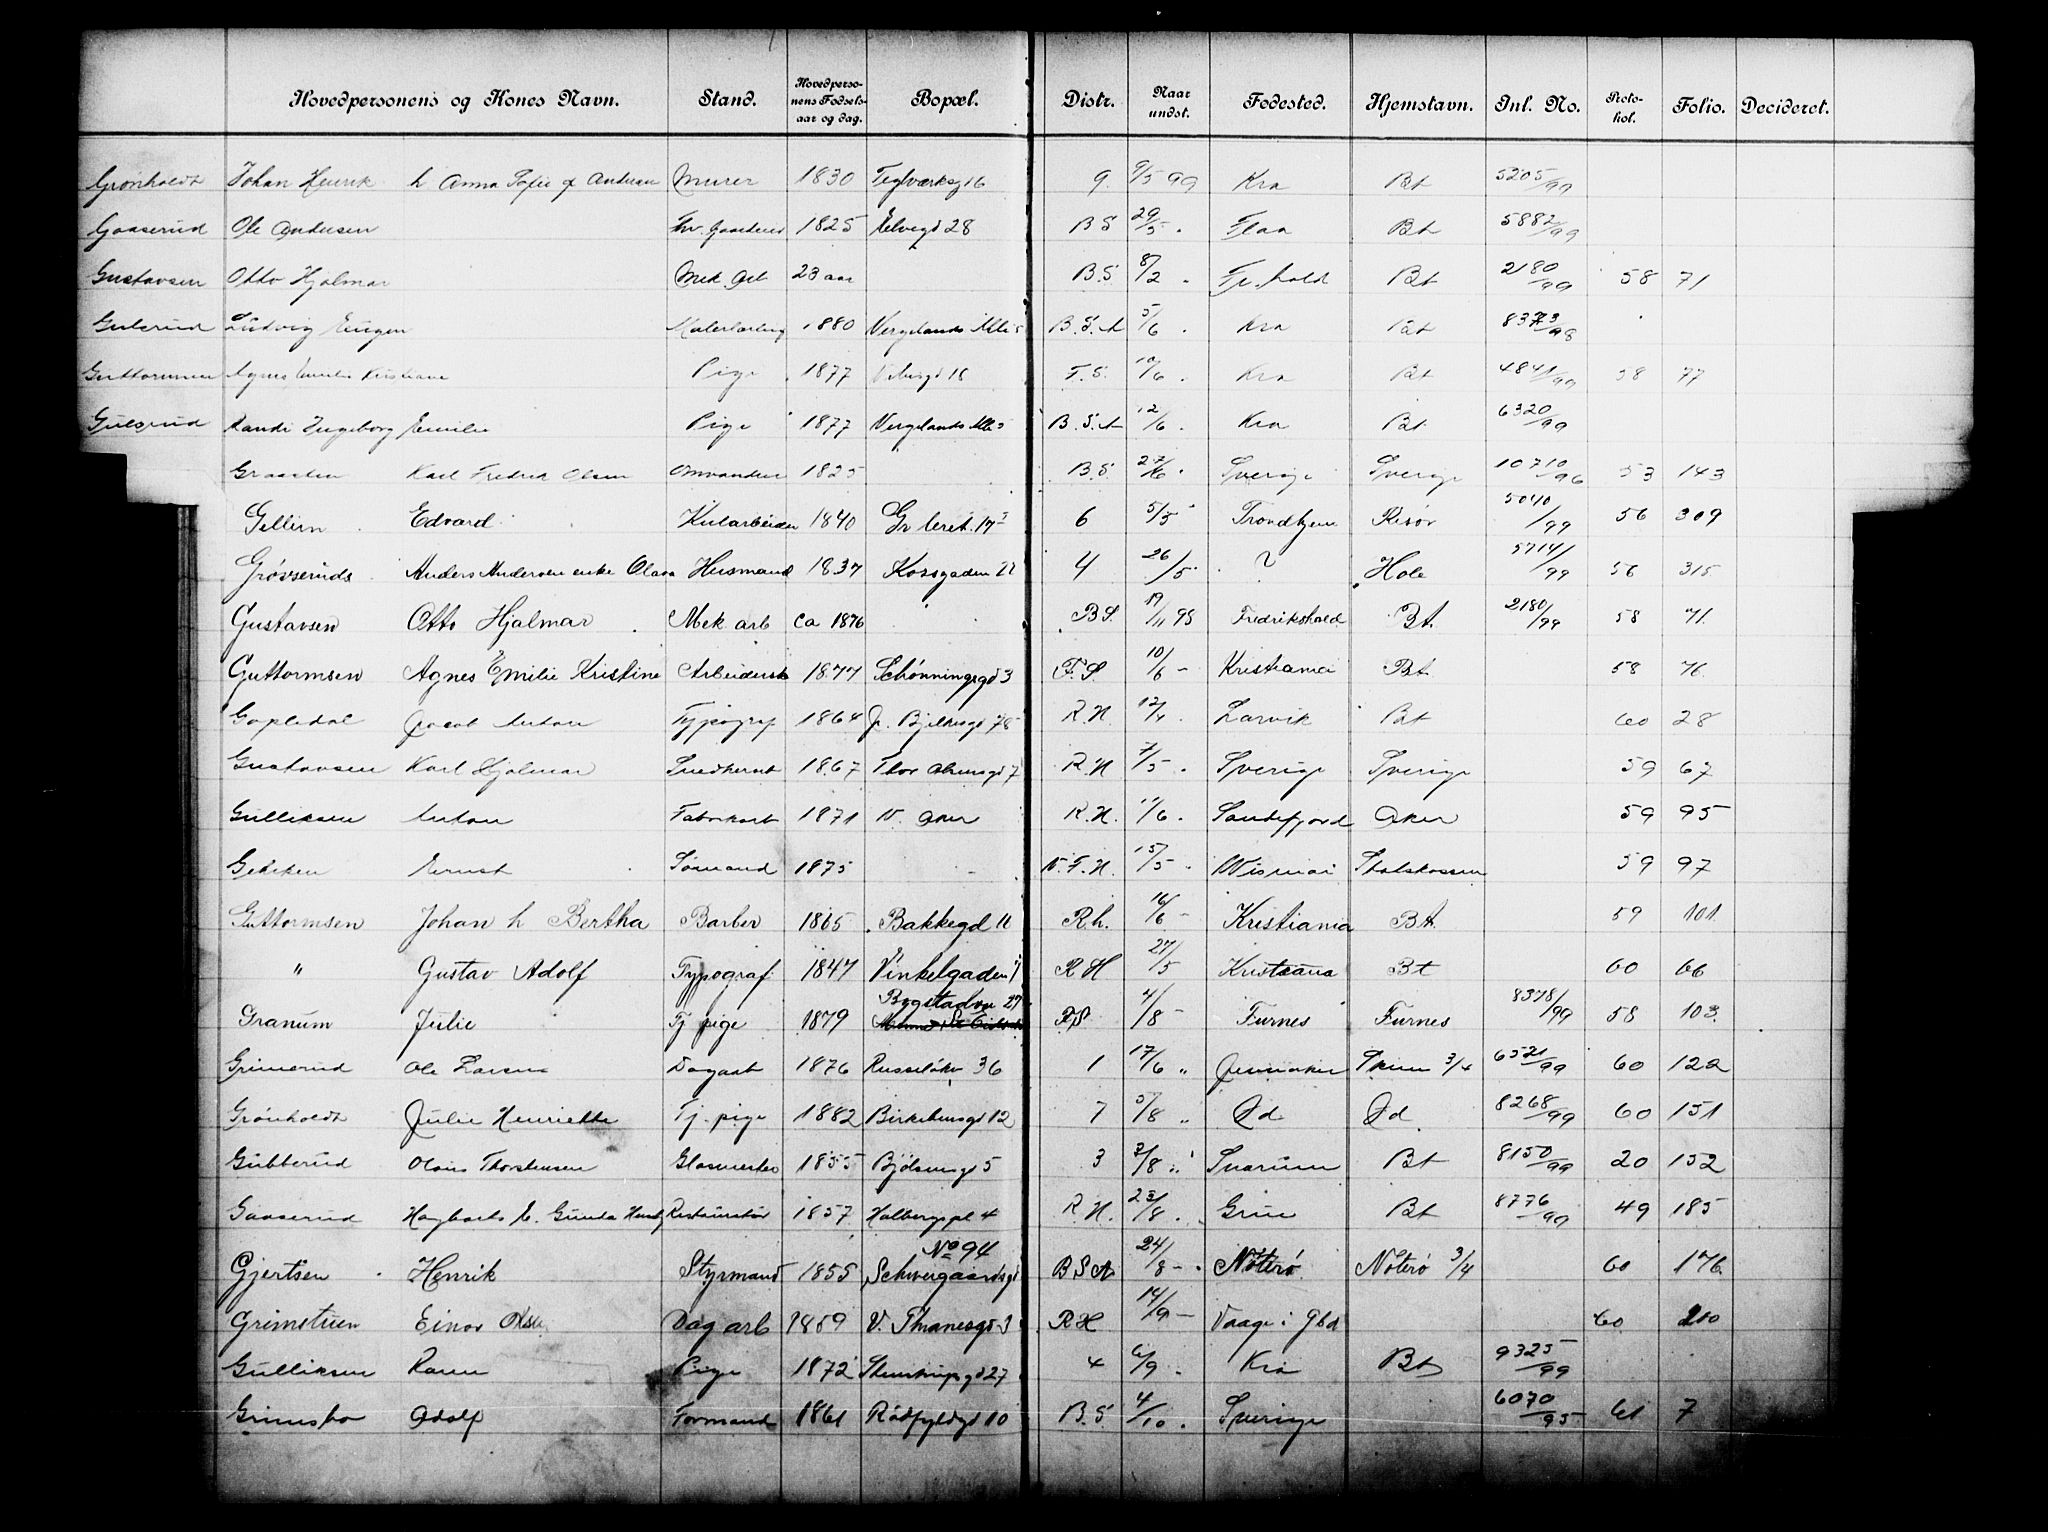 Hovedpersonens og Kones Navn. Stand. Hovedpersonens Fødselsaar og dag. Bopæl. Distr. Naar undst. Fødested. Hjemstavn. Inl. No. Protokol. Folio. Decideret.
Grønholdt Johan Henrik h Anna Sofie f Andersen Murer 1830 Teglverksg 16 9. 9/5 99 Kra Bt 5205/99
Gaaserud Ole Andersen Fhv. Gaardeier 1825 Elvegd 28 B S 29/5 . Flaa Bt 5882/99
Gustavsen Otto Hjalmar Mek Arb 23 aar B.S 8/2 . Fr. hald Bt 2180/99 58 71
Gulsrud Ludvig Eugen Malerlærling 1880 Vergelands Alle 5 B.S.A 5/6 . Kra Bt 8373/98
Guttormsen Agnes Emilie Kristiane Pige 1877 F.S. 10/6 . Kra Bt 4841/99 58 77
Gulsrud Randi Ingeborg Emilie Pige 1877 Vergelands Alle 5 B.S.A 12/6 . Kra Bt. 6320/99
Graasten Karl Fredrik Olsen Omvandrer 1825 B.S. 27/6 . Sverige Sverige 10710/96 53 143
Gellein Edvard Kularbeider 1840 Gr leret. 17 6 5/5 Trondhjem Risør 5040/99 56 309
Grøvseruds Anders Andersen enke Olava Husmand 1837 Korsgaden 22 4 26/5 ? Hole 5714/99 56 315
Gustavsen Otto Hjalmar Mek arb ca 1876 B S. 19/11 98 Fredrikshald Bt. 2180/99 58 71.
Guttormsen Agnes Emilie Kristine Arbeidersk 1877 Schønningsgd 3 F. S. 10/6 - Kristiania Bt 58 76.
Gopledal Jacob Anton Typograf 1864 J. Bjelkesgd 78 R.H. 12/4 . Larvik Bt 60 28
Gustavsen Karl Hjalmar Snedkersv 1867 Thor Olsensgd 7 R.H 7/5 . Sverige Sverige 59 67
Gulliksen Anton Fabrikarb 1871 V. Aker R.H. 10/6 . Sandefjord Aker 59 95
Gehrken Ernst Sømand 1875 - V.F.H. 15/5 . Wismar Statskassen 59 97
Guttormsen Johan h Bertha Barber 1865 Bakkegd 11 R.h. 16/6 - Kristiania Bt. 59 101.
" Gustav Adolf Typograf 1847 Vinkelgaden 1 R H 27/5 Kristiania Bt 60 66
Granum Julie Tj pige 1879 Bygstadvn 27 R.S. 4/8 - Furnes Furnes 8378/99 58 103.
Grimsrud Ole Larsen Dagarb 1876 Russeløkv 36 1 17/6 „ Jevnaker Skien 3/4 6521/99 60 122
Grønholdt Julie Henriette Tj. pige 1882 Birkebeinsgd 12 7 5/8 „ Ød Ød 8268/99 60 151
Gubberud Olaus Thorstensen Glasmester 1855 Bjølsensgd 5 3 3/8 „ Snarum Bt 8150/99 20 152
Gaaserud Hagbarts E. Gunda Restauratør 1857 Holbergspl 4 R.H. 23/8 . Grue Bt 8776/99 49 185
Gjertsen Henrik Styrmand 1855 Schweigaardsgd No 94 B S A 24/8 - Nøterø Nøterø 3/4 60 176.
Grimstuen Einar Olsen Dag arb 1859 V. Thranesgd 3 R H 14/9 - Vaage i Gbd 60 210
Gulliksen Karen Pige 1872 Stenstrupsgd 27 4 6/9 . Kra Bt 9325/99
Grimsbo Adolf Formand 1861 Rødfyldgd 10 B.S 4/10 . Sverige 6070/95 61 7